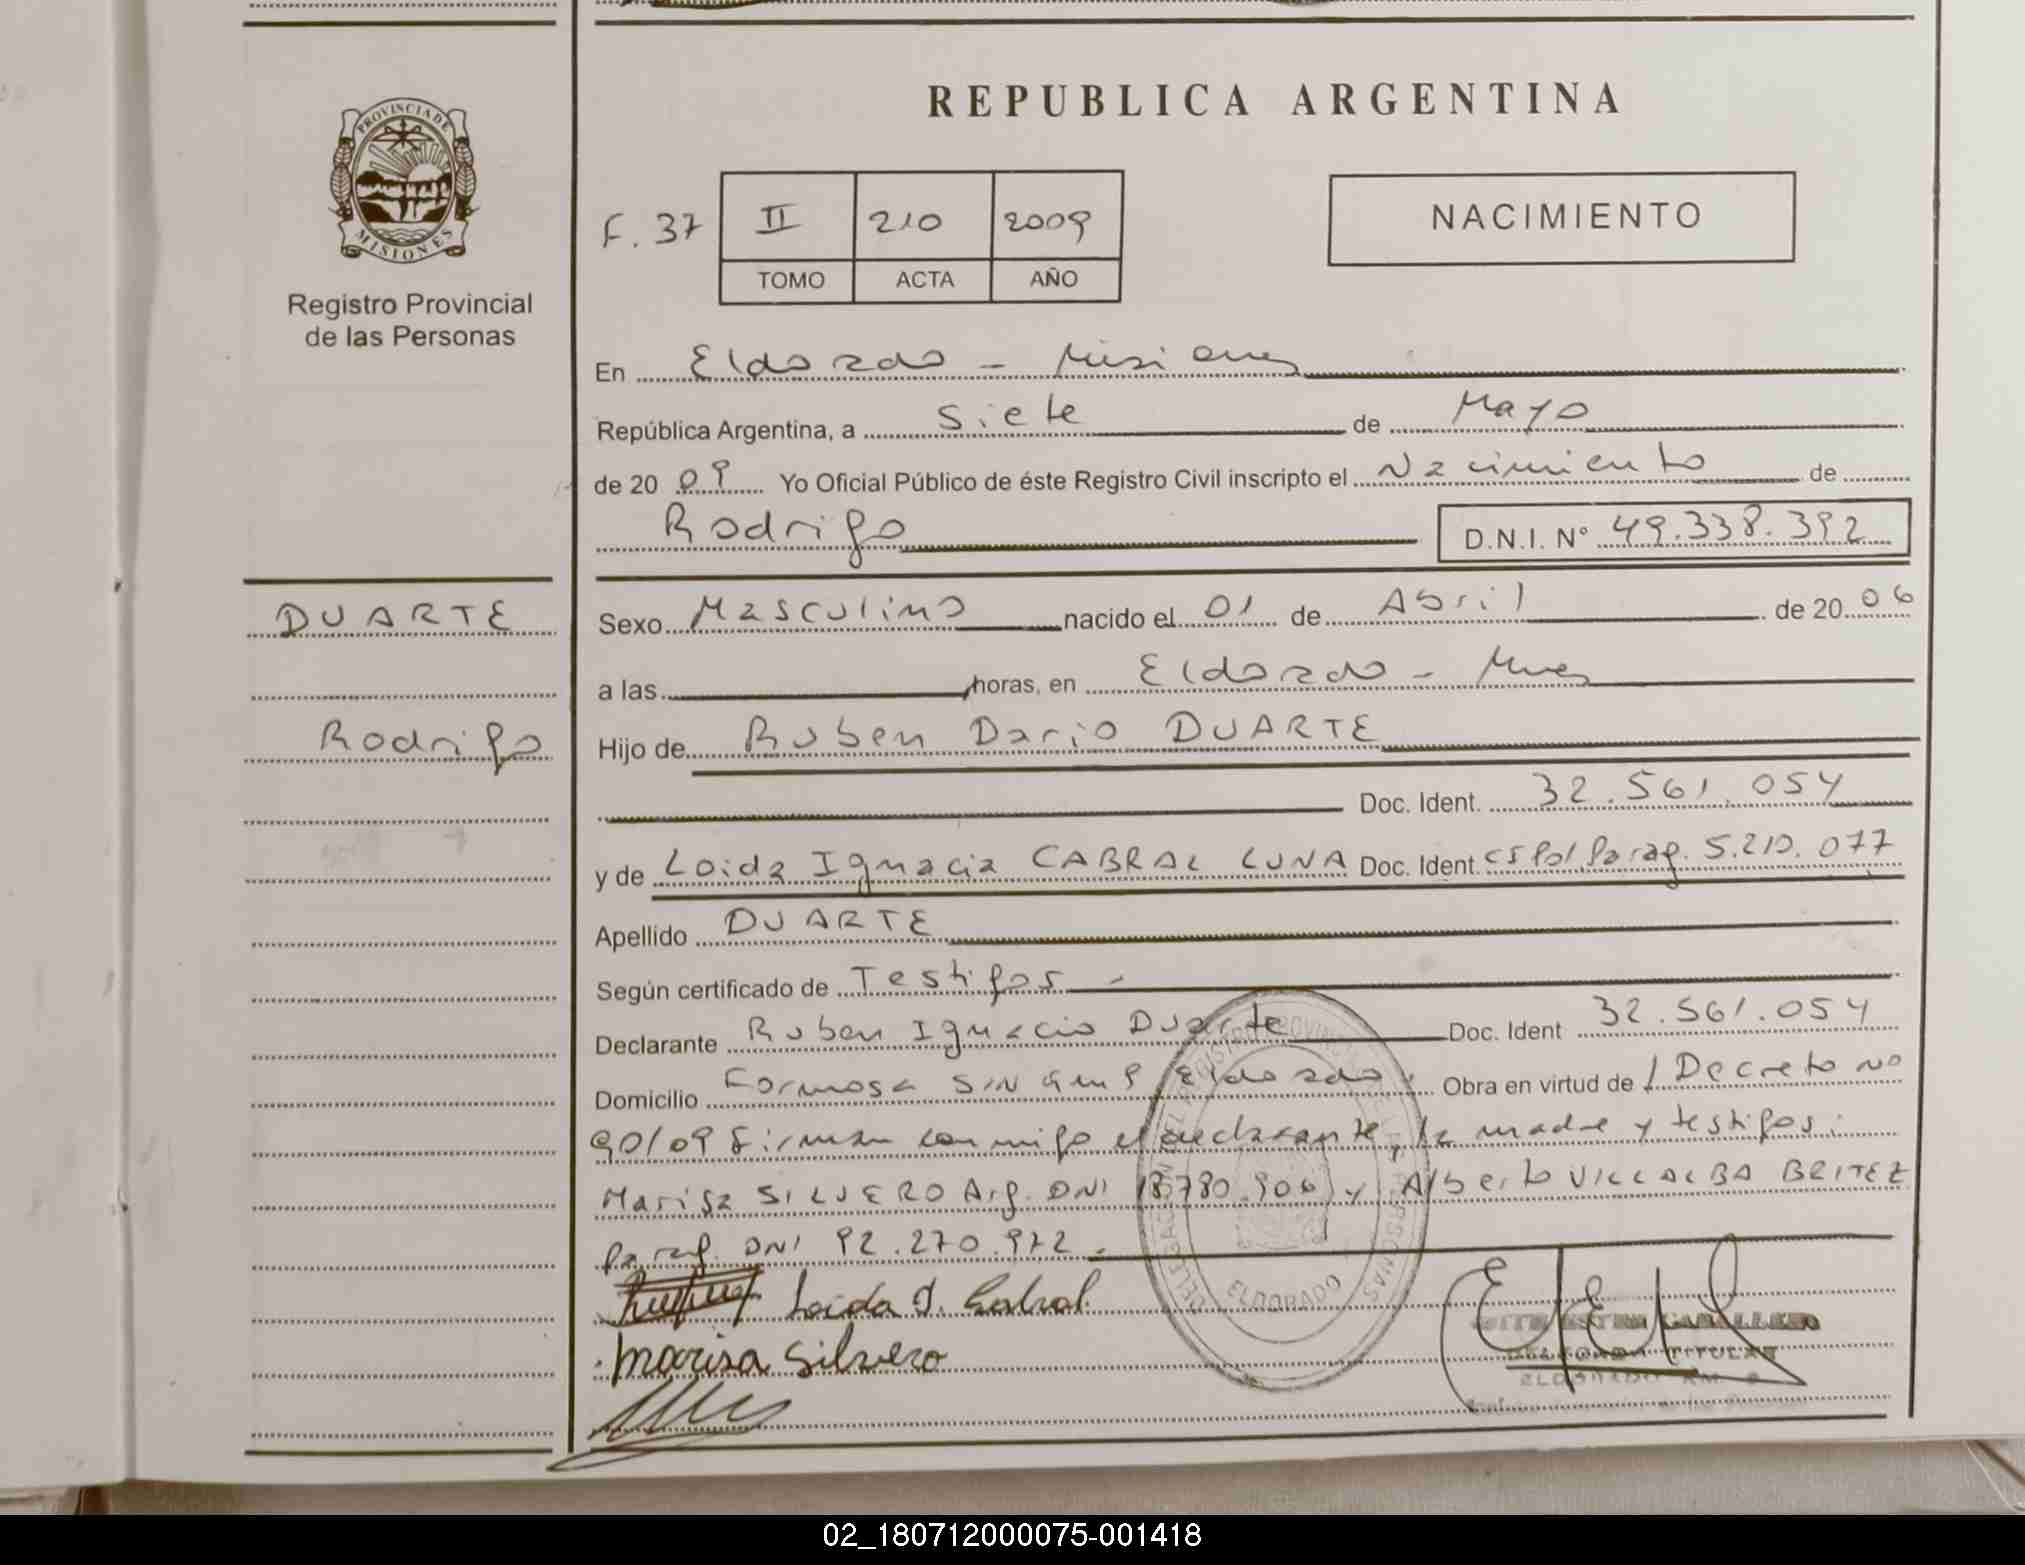 REPUBLICA ARGENTINA
PROVINCIA DE MISIONES
Registro Provincial
de las Personas
F. 37
II 210 2009
TOMO ACTA AÑO
NACIMIENTO
En Eldorado - Misiones
República Argentina, a Siete de Mayo
de 2009 Yo Oficial Público de éste Registro Civil inscripto el Nacimiento de
Rodrigo D.N.I. Nº 49.338.392
DUARTE
Rodrigo
Sexo Masculino nacido el 01 de Abril de 2006
a las horas, en Eldorado - Mnes
Hijo de Ruben Dario DUARTE
Doc. Ident. 32.561.054
y de Loida Ignacia CABRAL LUNA Doc. Ident. CI Pol Parag. 5.210.077
Apellido DUARTE
Según certificado de Testigos -
Declarante Ruben Ignacio Duarte Doc. Ident 32.561.054
Domicilio Formosa SIN Eldorado. Obra en virtud de / Decreto Nº
90/09 Firman conmigo el declarante, la madre y testigos:
Marisa SILVERO Arg. DNI 18.780.906 y Alberto VILLALBA BRITEZ
Parag. DNI 92.270.972.-
Loida I. Cabral
Marisa Silvero
ELDORADO
CABALLERO
DELEGADA TITULAR
02_180712000075-001418